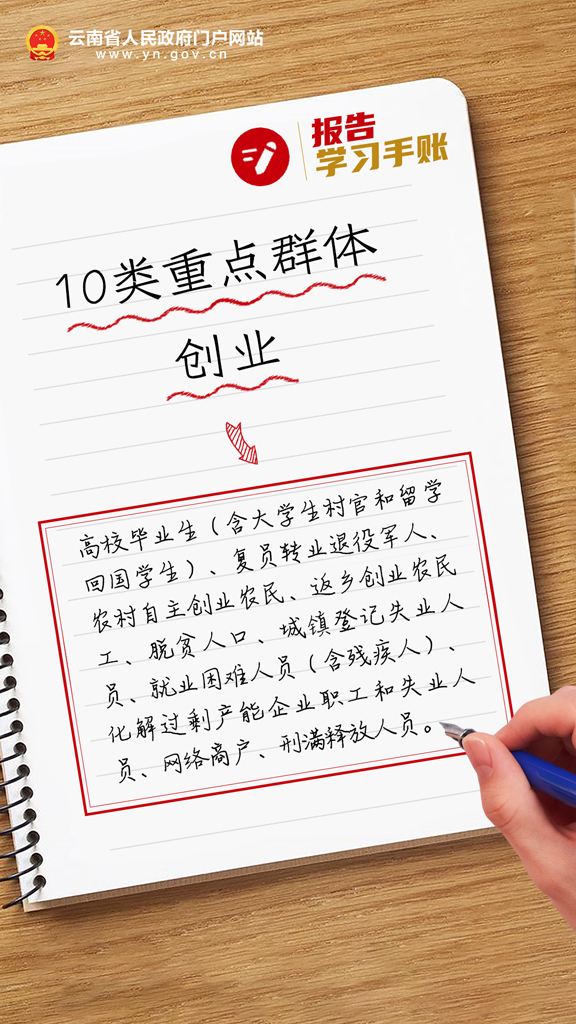 云南省人民政府门户网站
www.yn.gov.cn
报告
学习手账
10类重点群体
创业
高校毕业生（含大学生村官和留学
回国学生）、复员转业退役军人、
农村自主创业农民、返乡创业农民
工、脱贫人口、城镇登记失业人
员、就业困难人员（含残疾人）、
化解过剩产能企业职工和失业人
员、网络商户、刑满释放人员。